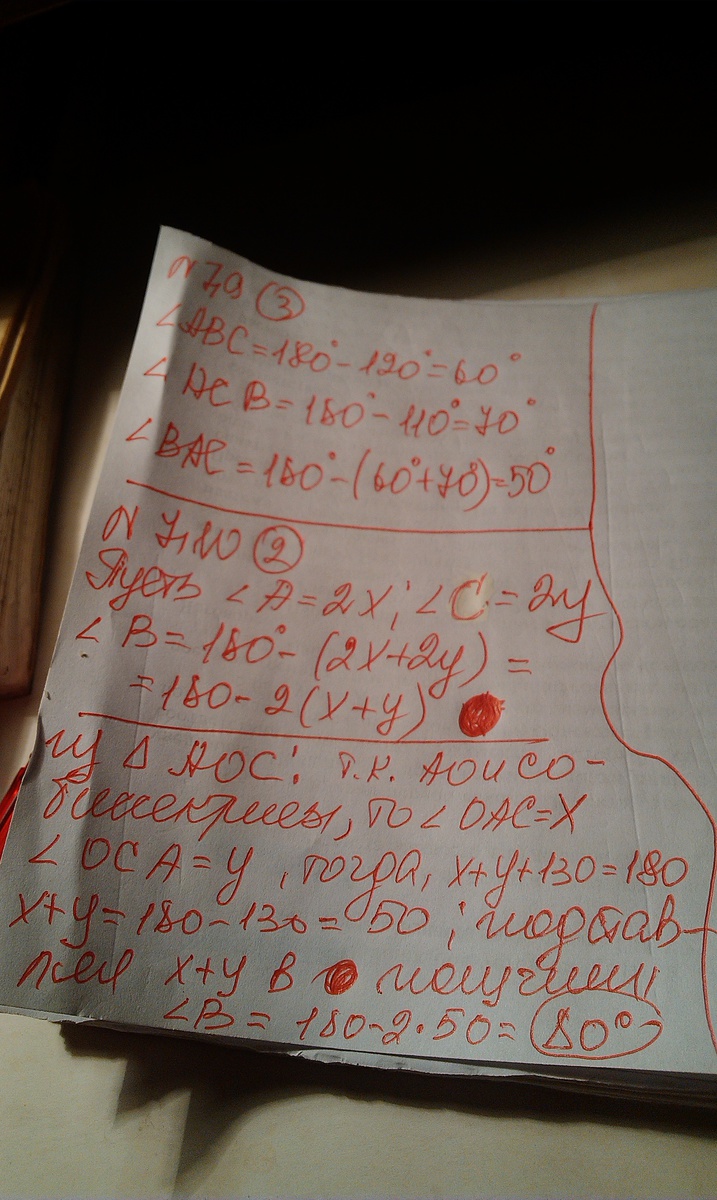 N 7,9 (3)
∠ABC=180°-120°=60°
∠ACB=180°-110°=70°
∠BAC=180°-(60°+70°)=50°
N 7,10 (2)
Пусть ∠A=2x; ∠C=2y
∠B=180°-(2x+2y)=
=180-2(x+y)
из Δ AOC: т.к. AO и CO-
биссектрисы, то ∠OAC=x
∠OCA=y, тогда, x+y+130=180
x+y=180-130=50; подстав-
ляя x+y в получим
∠B=180-2·50=80°